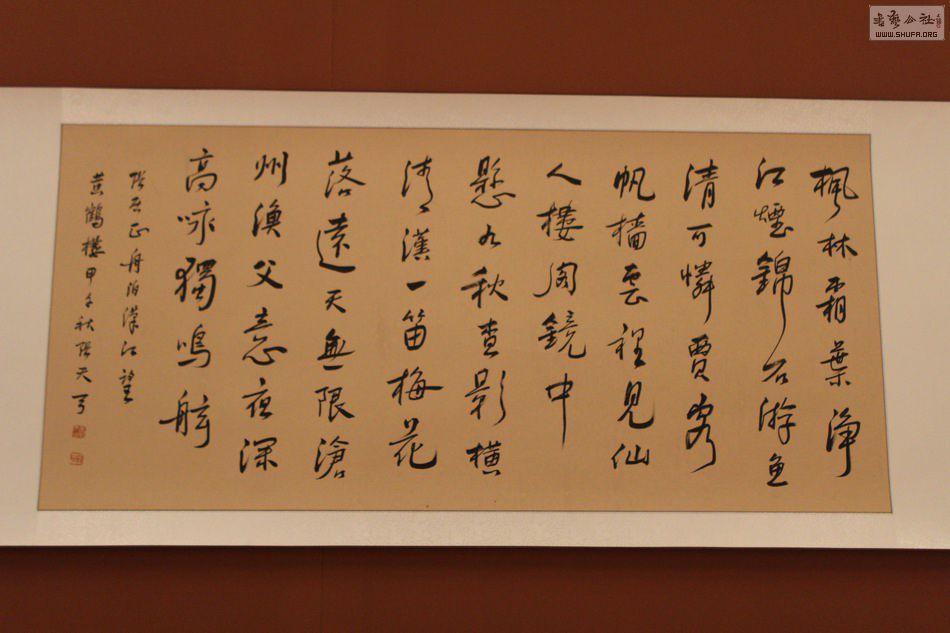 枫林霜葉淨
江煙錦石游魚
清可憐賈客
帆檣雲裡見仙
人樓閣鏡中
懸九秋查影橫
清漢一笛梅花
落遠天無限滄
州漁父意夜深
高咏獨鳴舷
張居正舟泊漢江望
黃鶴樓甲午秋張天弓
WWW.SHUFA.ORG